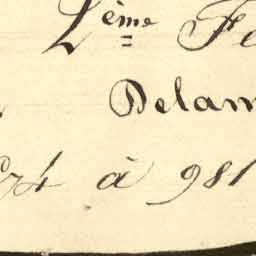 2ème Fe
Delam
74 à 981